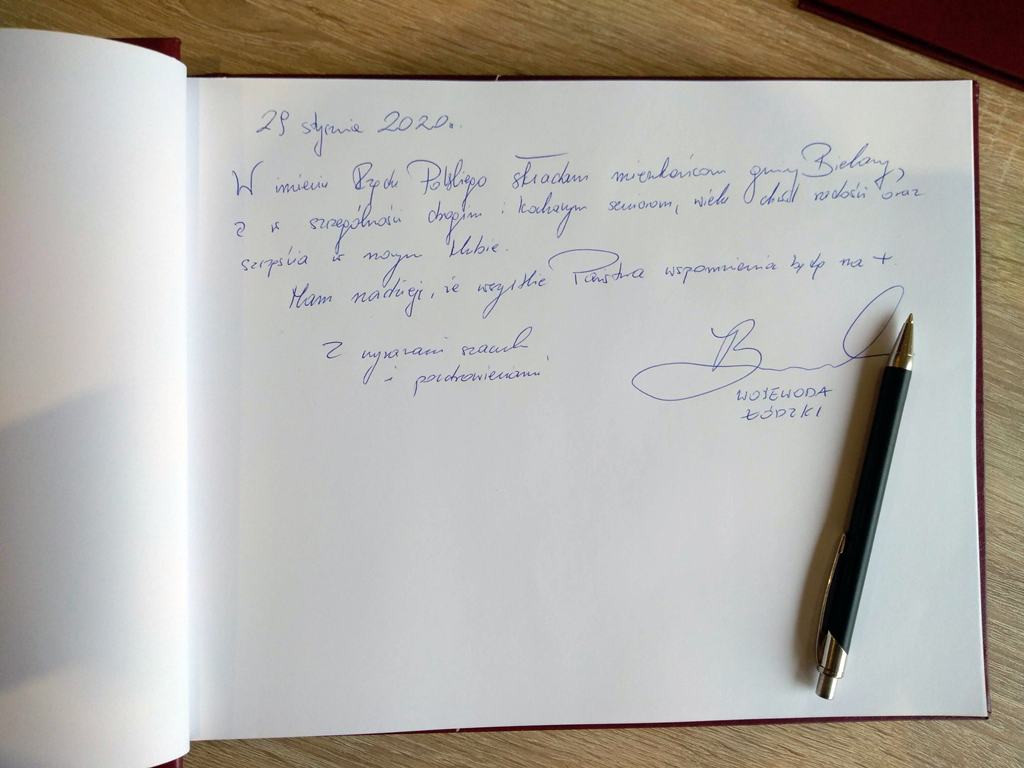 29 stycznia 2020r.
W imieniu Rządu Polskiego składam mieszkańcom gminy Bielawy,
a w szczególności drogim i kochanym seniorom, wielu chwil radości oraz
szczęścia w nowym klubie.
Mam nadzieję, że wszystkie Państwa wspomnienia będą na +.
Z wyrazami szacunku
i pozdrowieniami
WOJEWODA
ŁÓDZKI